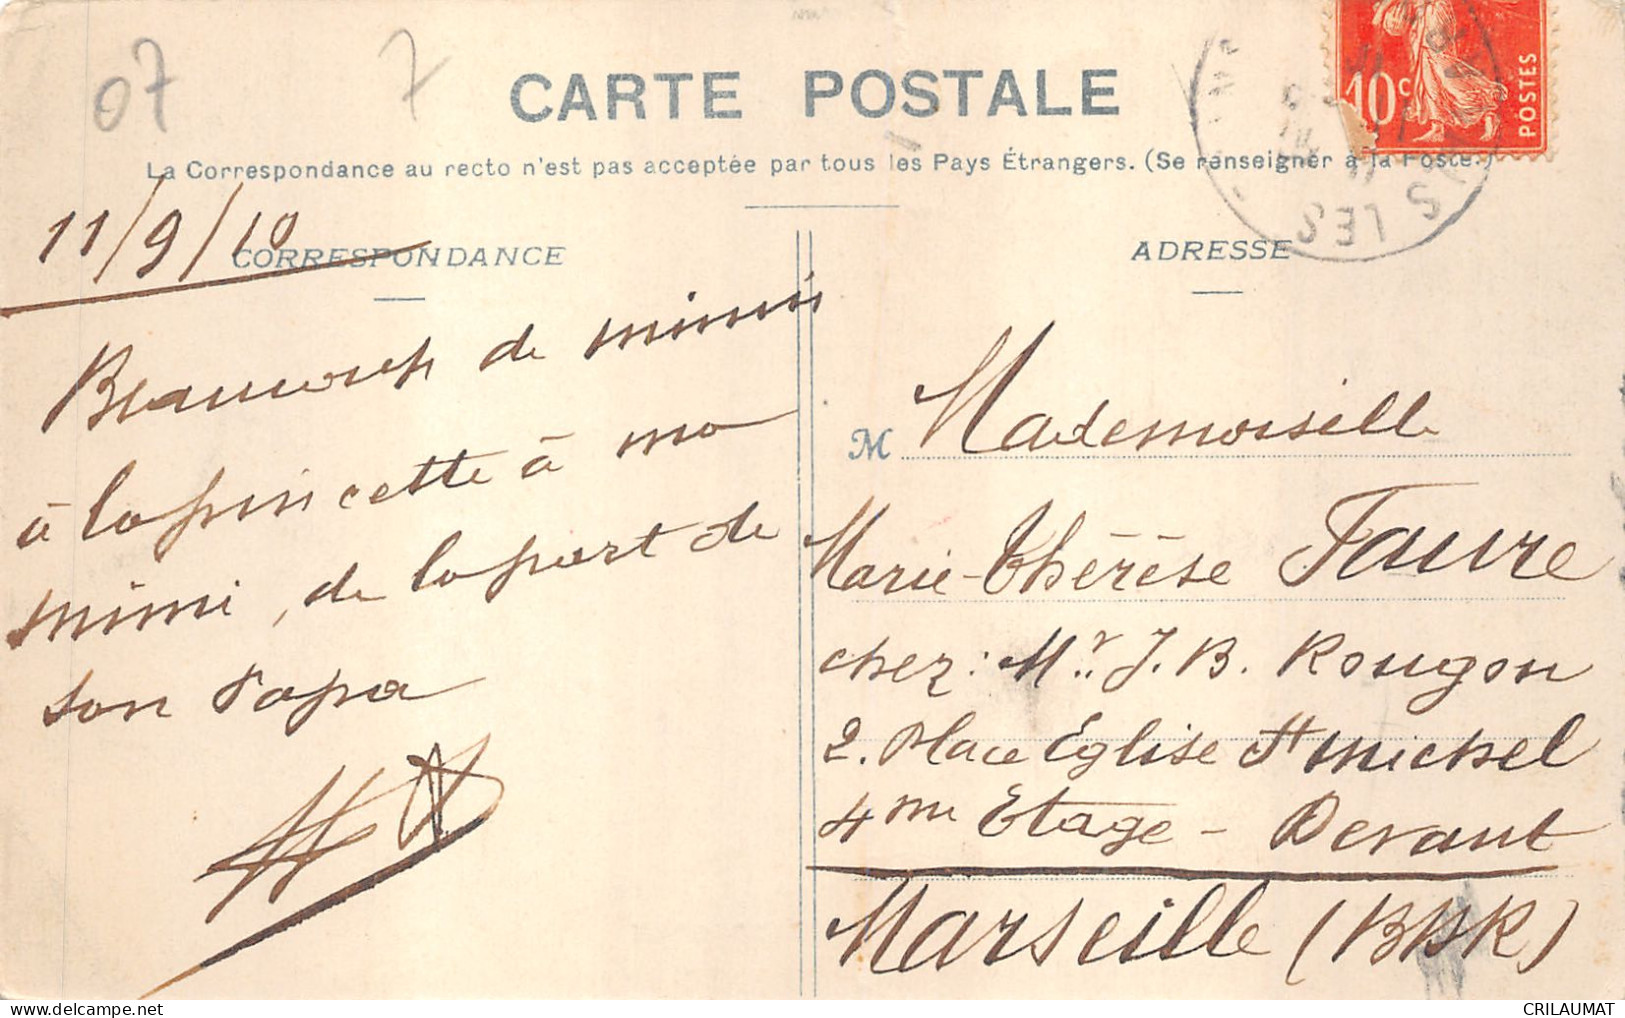 07
7
CARTE POSTALE
10c
POSTES
La Correspondance au recto n'est pas acceptée par tous les Pays Étrangers. (Se renseigner à la Poste.)
LES
11/9/10
CORRESPONDANCE
Beaucoup de mimis
à la pincette à ma
mimi, de la part de
son Papa
ADRESSE
M Mademoiselle
Marie-Thérèse Faure
chez: Mr J. B. Rougon
2. Place Eglise St Michel
4me Etage - Devant
Marseille (BDR)
CRILAUMAT